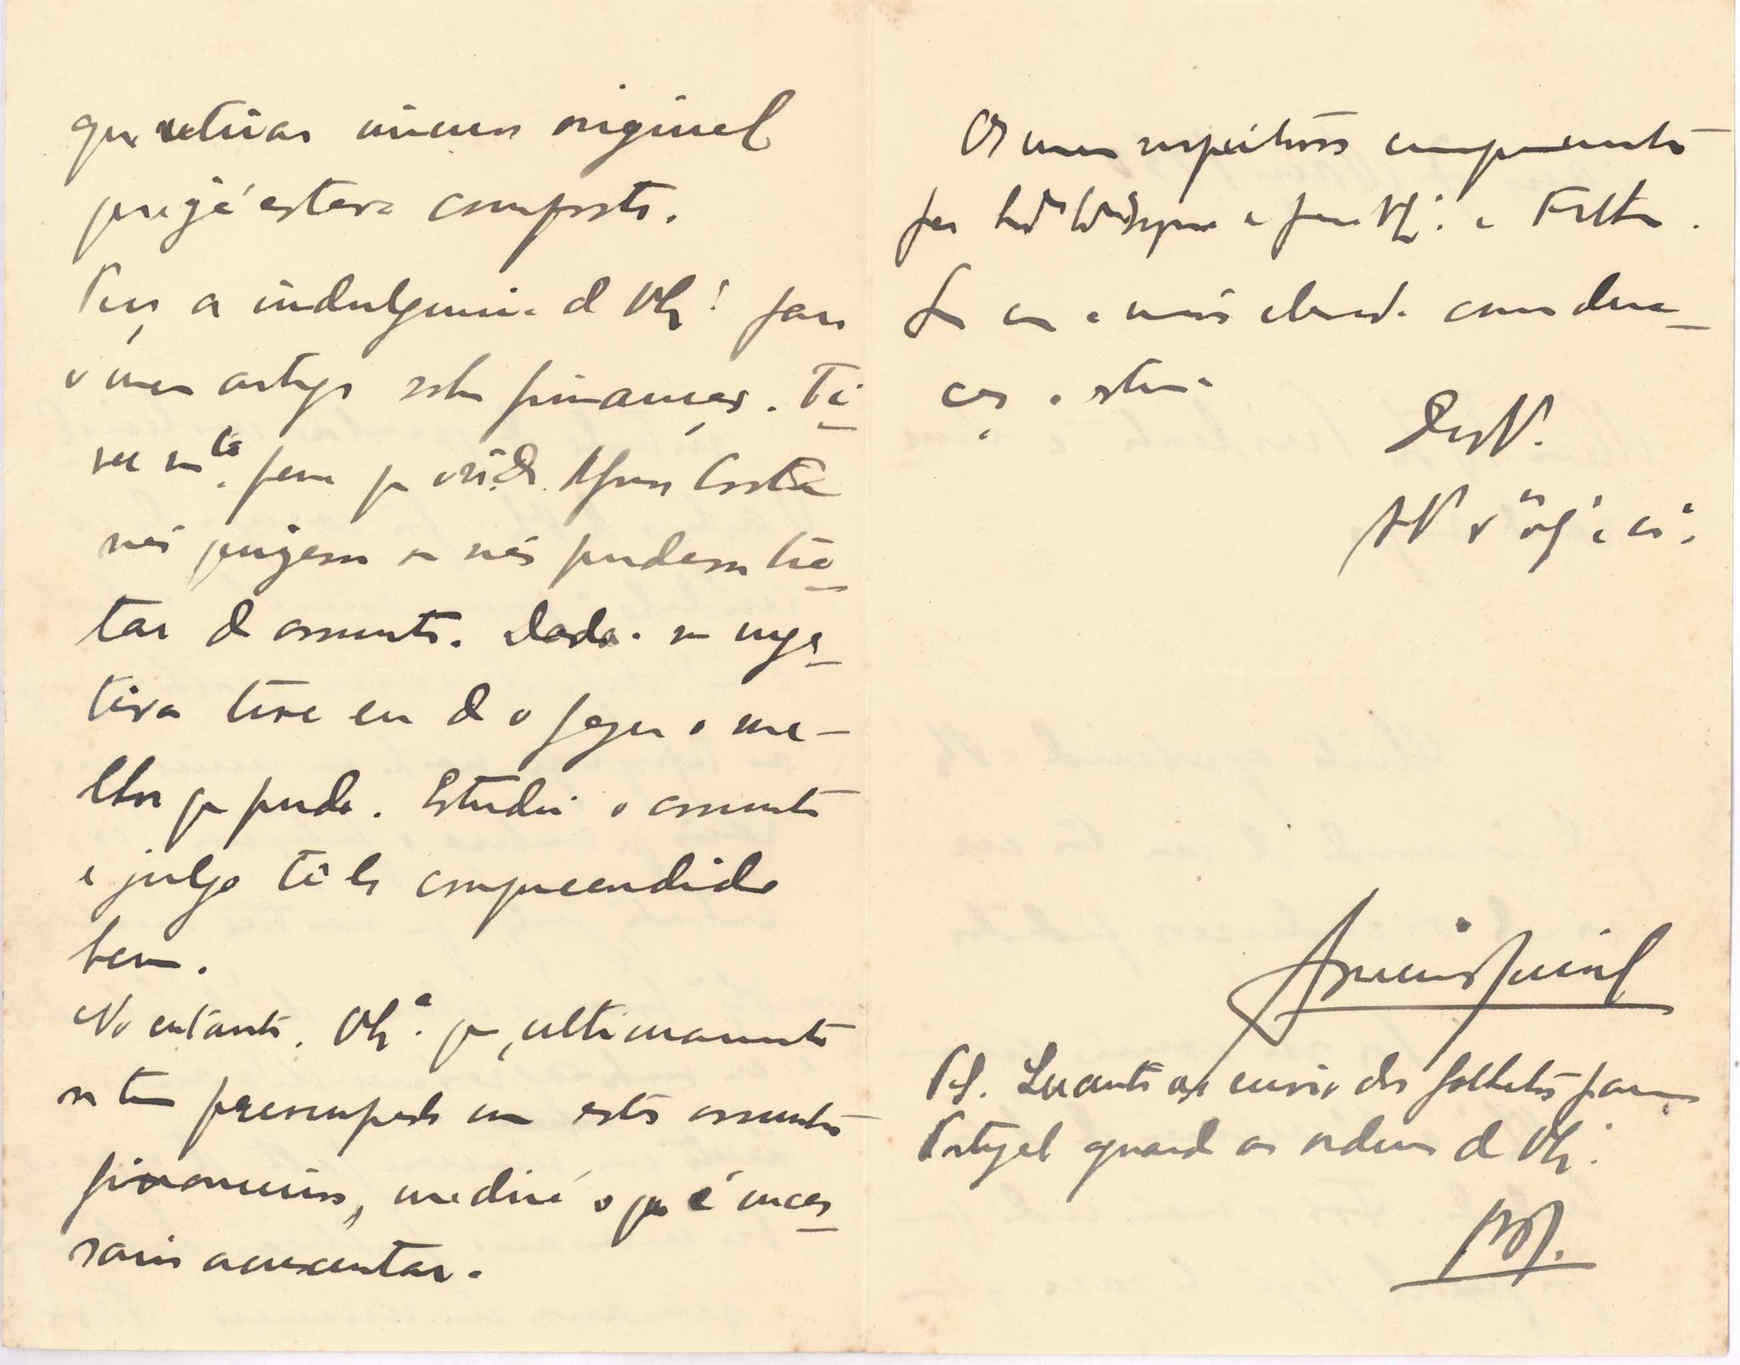 que retirar nenhum original
porq já estava composto.
Peço a indulgencia de VExª para
o meu artigo sobre finanças. Ti
ve mta. pena q o Sr. Dr. Afonso Costa
não quizesse ou não pudesse tra
tar do assunto. Dada a sua nega
tiva tive eu de o fazer o me-
lhor q pude. Estudei o assunto
e julgo te-lo compreendido
bem.
No entanto, VExª. q, ultimamente
se tem preocupado com estes assuntos
financeiros, me dirá o que é neces
sario acrescentar.
Os meus respeitosos cumprimentos
para e para VExª. e Filha.
Sou com a mais elevada considera-
ção e estima
De V.
PS. Quanto ao envio dos folhetos para
Portugal aguardo as ordens de VExª.